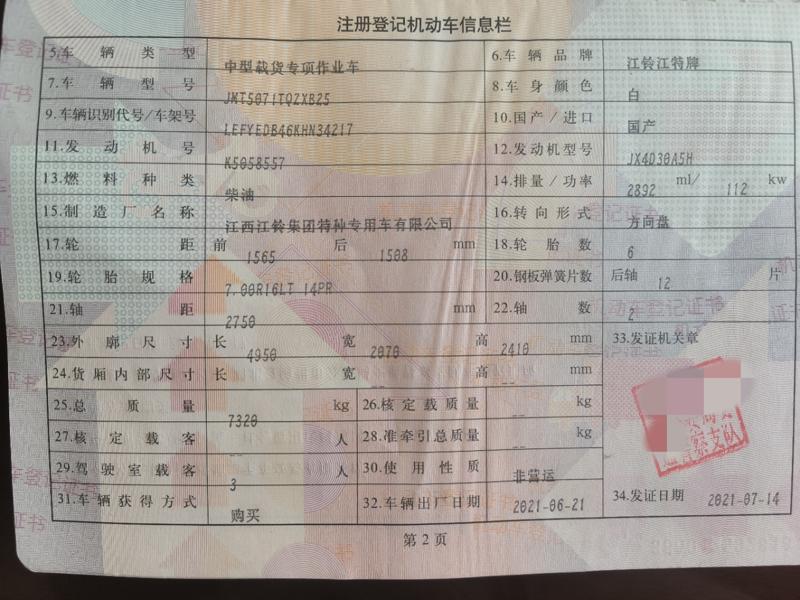 注册登记机动车信息栏
5.车辆类型 中型载货专项作业车 6.车辆品牌 江铃江特牌
7.车辆型号 JMT5071TQZXB25 8.车身颜色 白
9.车辆识别代号/车架号 LEFYEDB46KHN34217 10.国产/进口 国产
11.发动机号 K5058557 12.发动机型号 JX4D30A5H
13.燃料种类 柴油 14.排量/功率 2892 ml/ 112 kw
15.制造厂名称 江西江铃集团特种专用车有限公司 16.转向形式 方向盘
17.轮距 前 1565 后 1508 mm 18.轮胎数 6
19.轮胎规格 7.00R16LT 14PR 20.钢板弹簧片数 后轴 12 片
21.轴距 2750 mm 22.轴数 2
23.外廓尺寸 长 4950 宽 2070 高 2410 mm 33.发证机关章
24.货厢内部尺寸 长 -- 宽 -- 高 -- mm
25.总质量 7320 kg 26.核定载质量 -- kg
27.核定载客 -- 人 28.准牵引总质量 -- kg
29.驾驶室载客 3 人 30.使用性质 非营运
31.车辆获得方式 购买 32.车辆出厂日期 2021-06-21 34.发证日期 2021-07-14
第2页